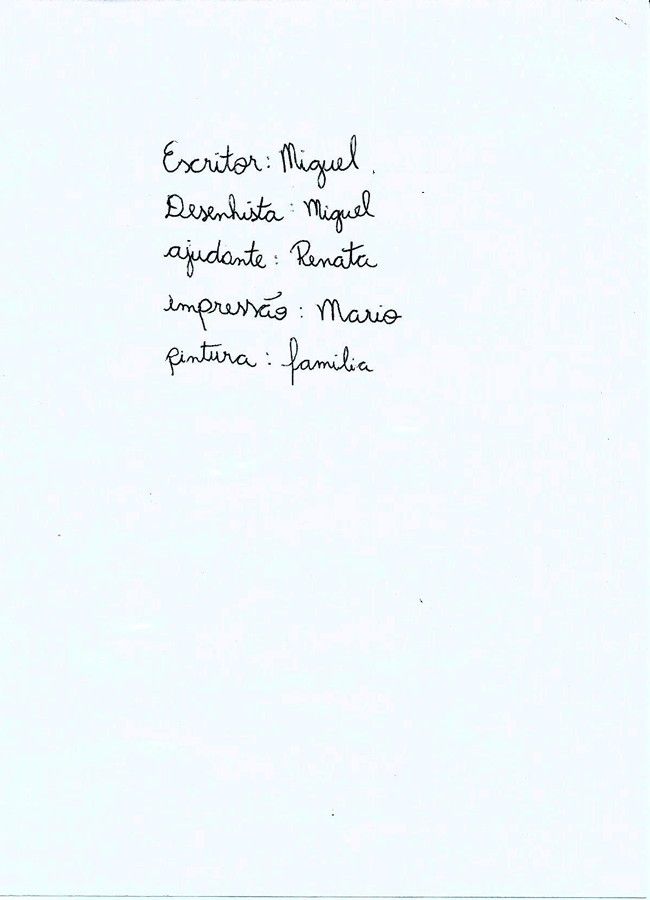 Escritor: Miguel.
Desenhista: Miguel
ajudante: Renata
impressão: Mario
pintura: familia